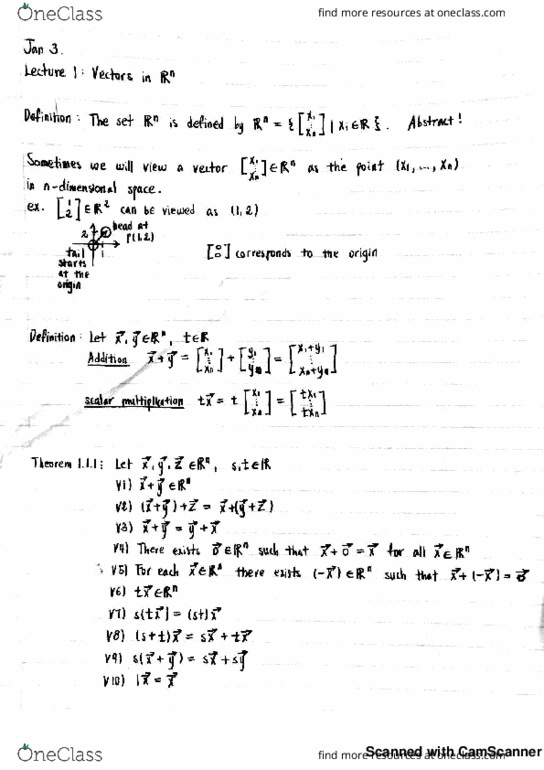 OneClass
find more resources at oneclass.com
Jan 3.
Lecture 1: Vectors in ℝⁿ
Definition: The set ℝⁿ is defined by ℝⁿ = { [x₁ ⋮ xₙ] | xᵢ ∈ ℝ }. Abstract!
Sometimes we will view a vector [x₁ ⋮ xₙ] ∈ ℝⁿ as the point (x₁, ..., xₙ)
in n-dimensional space.
ex. [1 2] ∈ ℝ² can be viewed as (1,2)
2 head at
P(1,2)
1
tail
starts
at the
origin
[0 0] corresponds to the origin
Definition: Let x⃗, y⃗ ∈ ℝⁿ, t ∈ ℝ
Addition x⃗ + y⃗ = [x₁ ⋮ xₙ] + [y₁ ⋮ yₙ] = [x₁+y₁ ⋮ xₙ+yₙ]
scalar multiplication tx⃗ = t [x₁ ⋮ xₙ] = [tx₁ ⋮ txₙ]
Theorem 1.1.1: Let x⃗, y⃗, z⃗ ∈ ℝⁿ, s,t ∈ ℝ
V1) x⃗ + y⃗ ∈ ℝⁿ
V2) (x⃗ + y⃗) + z⃗ = x⃗ + (y⃗ + z⃗)
V3) x⃗ + y⃗ = y⃗ + x⃗
V4) There exists 0⃗ ∈ ℝⁿ such that x⃗ + 0⃗ = x⃗ for all x⃗ ∈ ℝⁿ
V5) For each x⃗ ∈ ℝⁿ there exists (-x⃗) ∈ ℝⁿ such that x⃗ + (-x⃗) = 0⃗
V6) tx⃗ ∈ ℝⁿ
V7) s(tx⃗) = (st)x⃗
V8) (s+t)x⃗ = sx⃗ + tx⃗
V9) s(x⃗ + y⃗) = sx⃗ + sy⃗
V10) 1x⃗ = x⃗
Scanned with CamScanner
OneClass
find more resources at oneclass.com